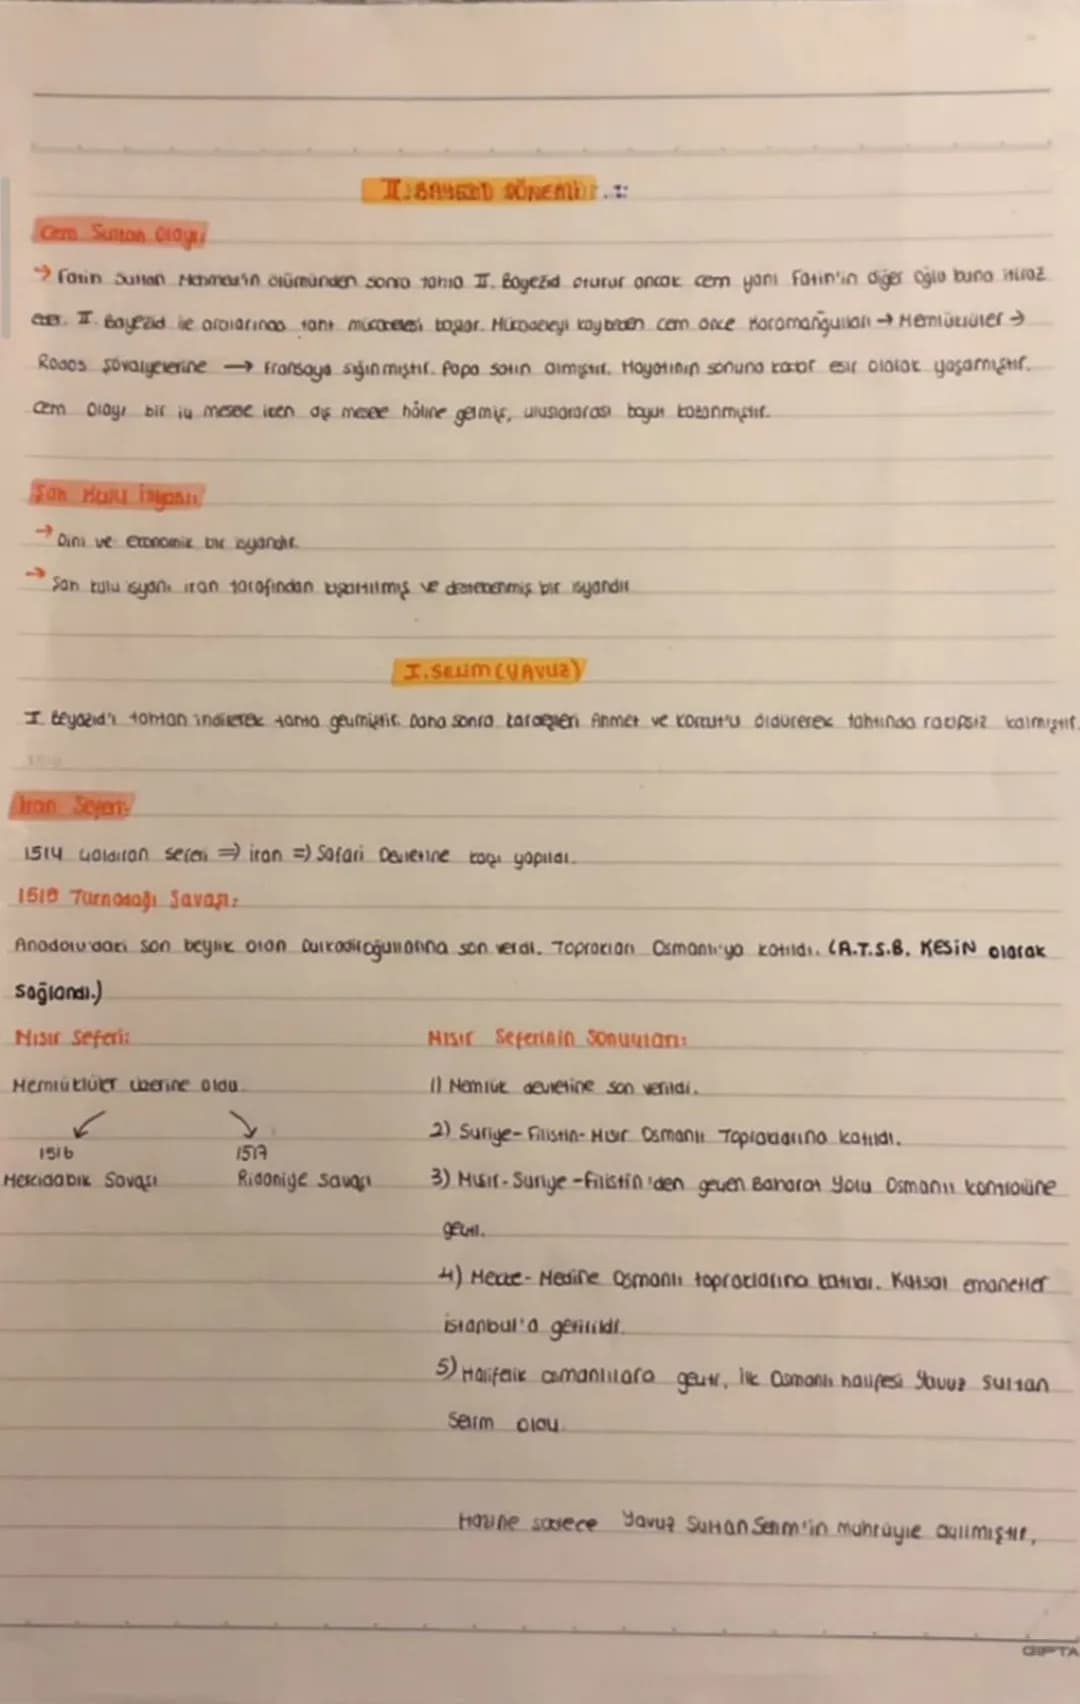 II. BAYEZİD DÖNEMİ:
Cem Sultan Olayı:
→ Fatih Sultan Mehmet'in ölümünden sonra tahta II. Bayezid oturur ancak cem yani Fatih'in diğer oğlu buna itiraz
eder. II. Bayezid ile aralarında taht mücadelesi başlar. Mücadeleyi kaybeden cem önce Karamanğulları → Memlüklüler →
Rodos Şövalyelerine → Fransaya sığınmıştır. Papa satın almıştır. Hayatının sonuna kadar esir olarak yaşamıştır.
Cem Olayı bir iç mesele iken dış mesele hâline gelmiş, uluslararası boyut kazanmıştır.
Şah Kulu İsyanı:
→ Dini ve Ekonomik bir isyandır.
→ Şah kulu isyanı iran tarafından kışkırtılmış ve desteklenmiş bir isyandır
I. Selim (YAVUZ)
I. Beyazıd'ı tahtan indirerek tahta geçmiştir. Daha sonra kardeşleri Ahmet ve Korkut'u öldürerek tahtında rakipsiz kalmıştır.
İran Seferi:
1514 Çaldıran Seferi ⇒ iran ⇒ Safari Devletine karşı yapıldı.
1510 Turnadağı Savaşı:
Anadolu'daki son beylik olan Dulkadiroğullarına son verdi. Toprakları Osmanlı'ya katıldı. (A.T.S.B. KESİN olarak
sağlandı.)
Mısır Seferi:
Memlüklüler üzerine oldu.
1516 1517
Mercidabık Savaşı Ridaniye Savaşı
Mısır Seferinin Sonuçları:
1) Memlük devletine son verildi.
2) Suriye-Filistin-Mısır Osmanlı Topraklarına katıldı.
3) Mısır-Suriye-Filistin'den geçen Baharat Yolu Osmanlı kontrolüne
geçti.
4) Mekke-Medine Osmanlı topraklarına katıldı. Kutsal emanetler
istanbul'a getirildi.
5) Halifelik osmanlılara geçti, İlk Osmanlı halifesi Yavuz Sultan
Selim oldu.
Hazine sadece Yavuz Sultan Selim'in mührüyle açılmıştır.
GIPTA